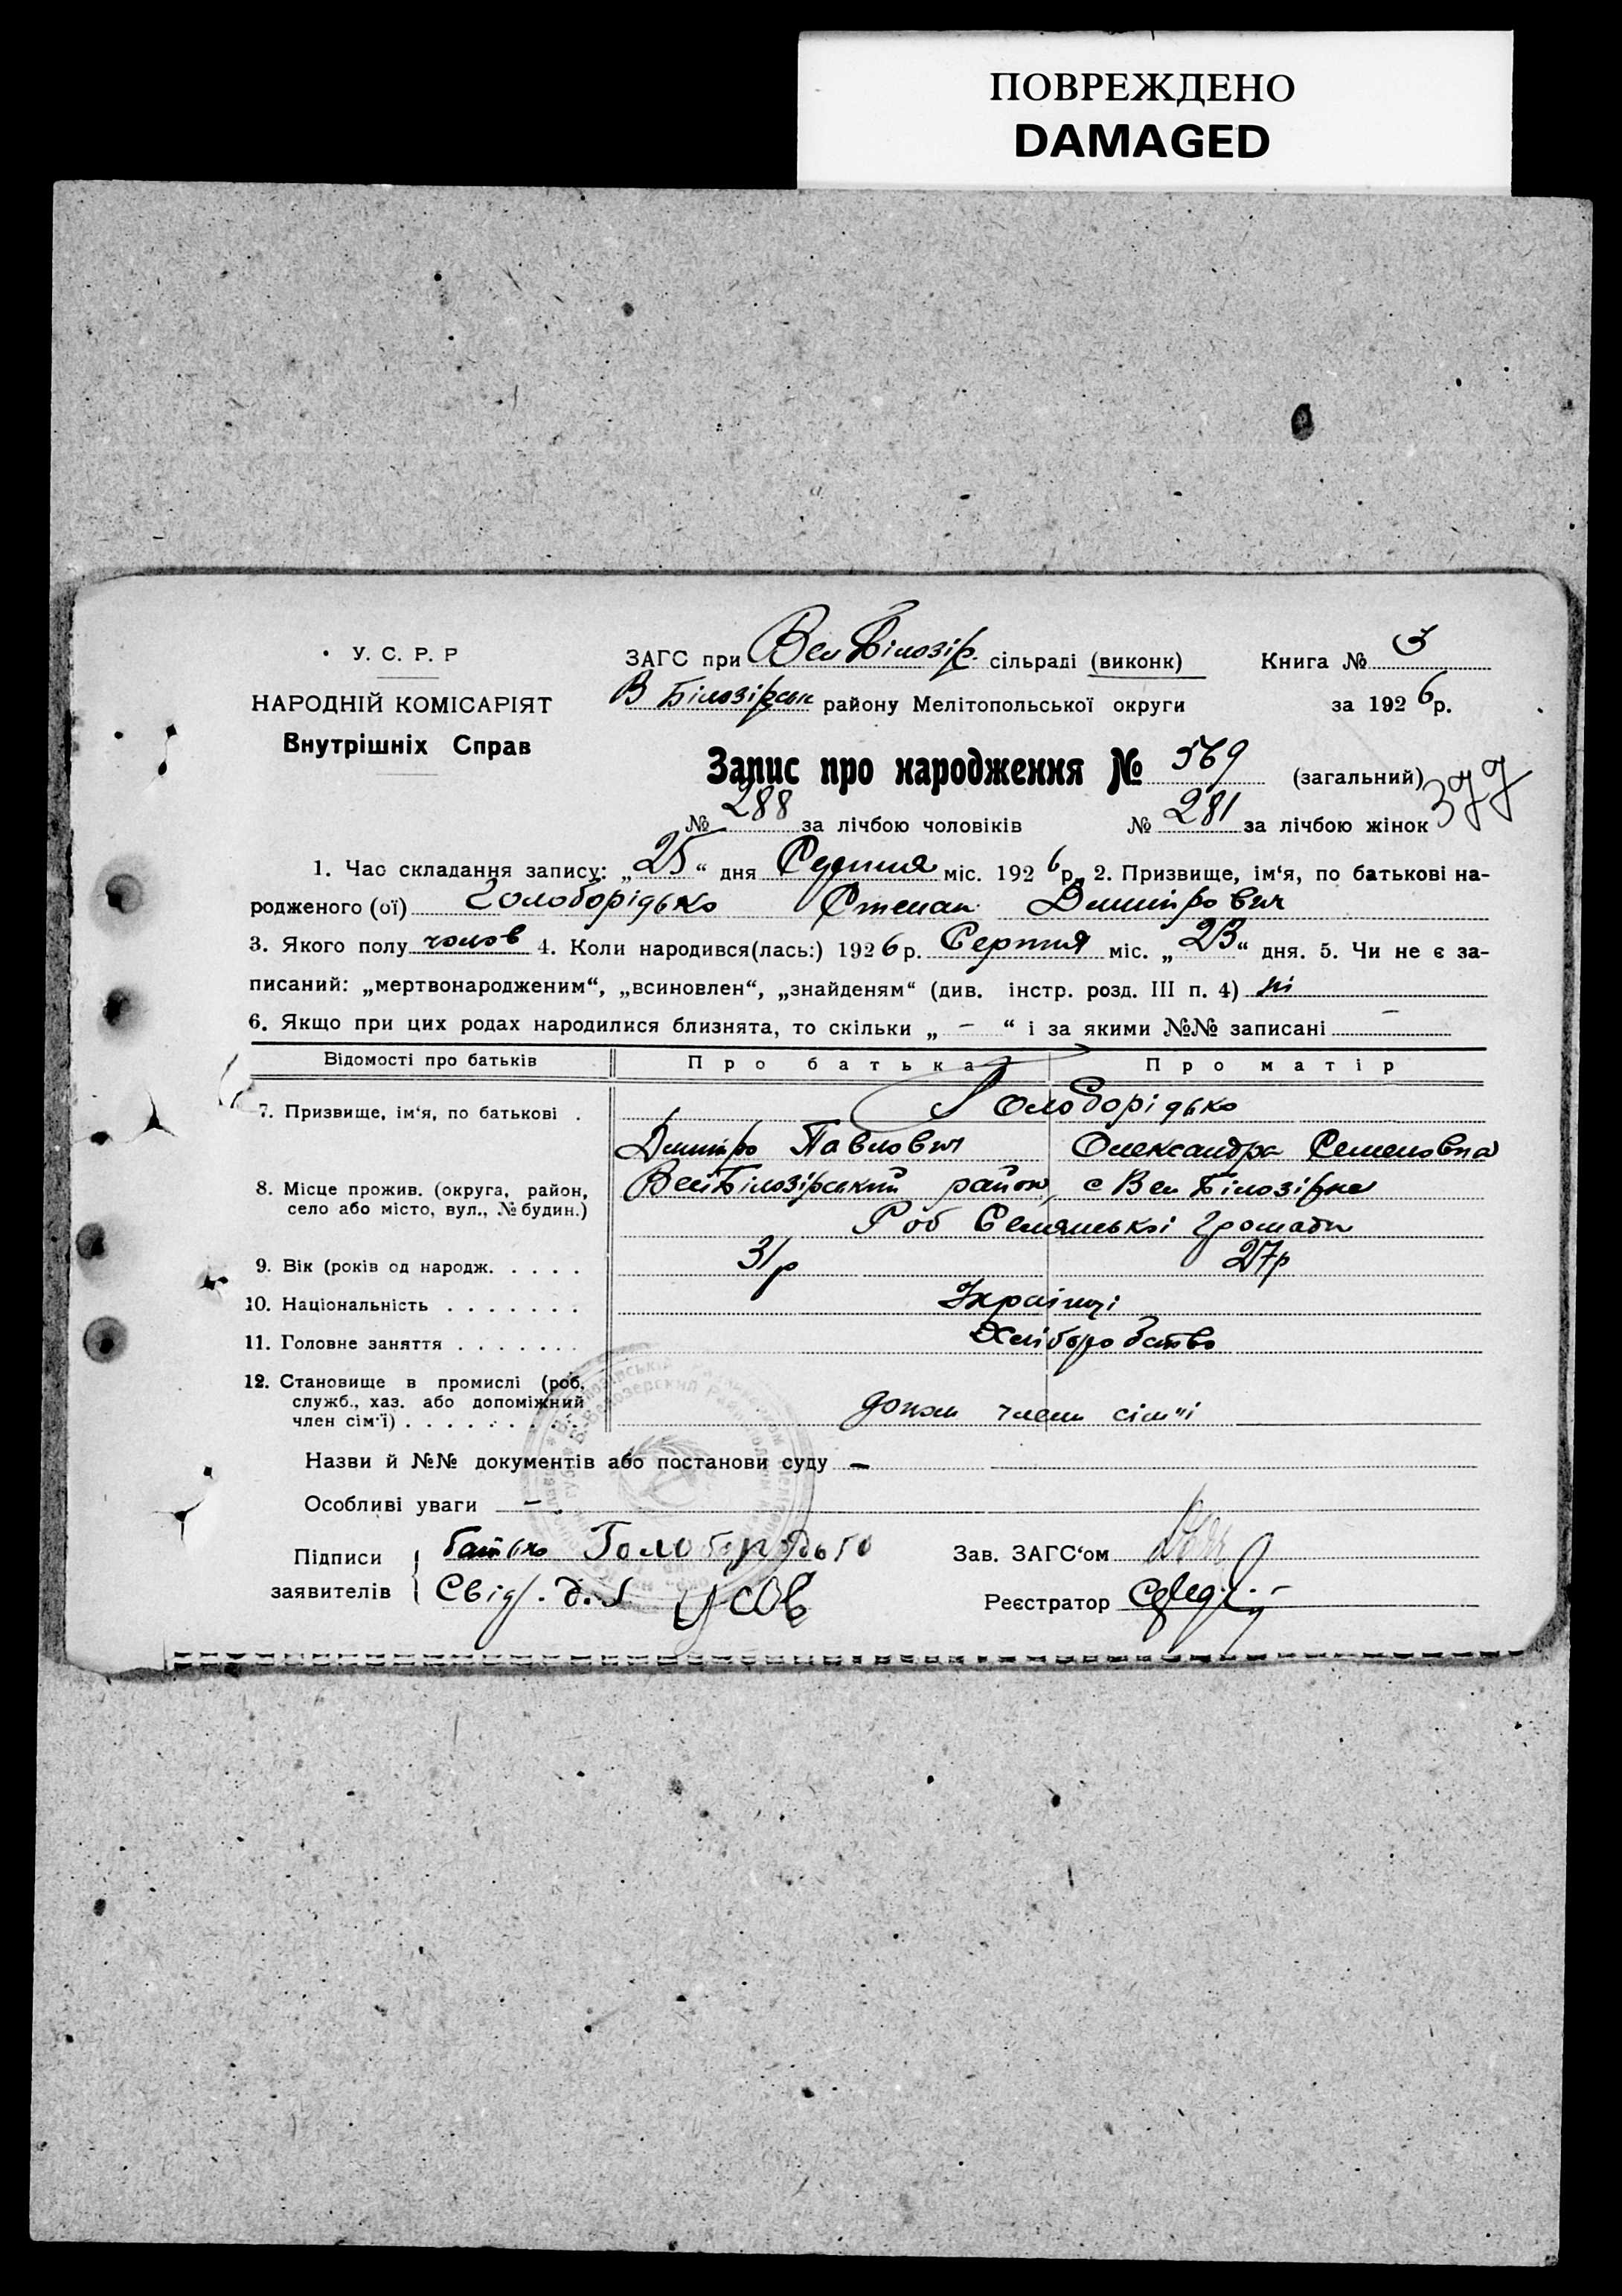 ПОВРЕЖДЕНО
DAMAGED
У. С. Р. Р
НАРОДНІЙ КОМІСАРІЯТ
Внутрішніх Справ
ЗАГС при Вел Білозір. сільраді (виконк) Книга № 3
В Білозірськ району Мелітопольської округи за 1926 р.
Запис про народження № 569 (загальний) 377
№ 288 за лічбою чоловіків № 281 за лічбою жінок
1. Час складання запису: „25“ дня Серпня міс. 1926 р. 2. Призвище, ім‘я, по батькові на-
родженого (ої) Голоборідько Степан Дмитрович
3. Якого полу чолов 4. Коли народився(лась:) 1926 р. Серпня міс. „23“ дня. 5. Чи не є за-
писаний: „мертвонародженим“, „всиновлен“, „знайденям“ (див. інстр. розд. III п. 4) ні
6. Якщо при цих родах народилися близнята, то скільки „ – “ і за якими №№ записані –
Відомості про батьків Про батька Про матір
7. Призвище, ім‘я, по батькові . Голоборідько
Дмитро Павлович Олександра Семеновна
8. Місце прожив. (округа, район, село або місто, вул., № будин.) Вел Білозірський район, с Вел Білозірка
Роб Селянської Громади
9. Вік (років од народж. . . . . 31 р 27 р
10. Національність . . . . . . . Українці
11. Головне заняття . . . . . . . Хліборобство
12. Становище в промислі (роб, служб., хаз. або допоміжний член сім‘ї) . . . . . . . . . допом член сім"і
Назви й №№ документів або постанови суду –
Особливі уваги –
Підписи заявителів батько Голобородько Зав. ЗАГС‘ом
Усов Реєстратор